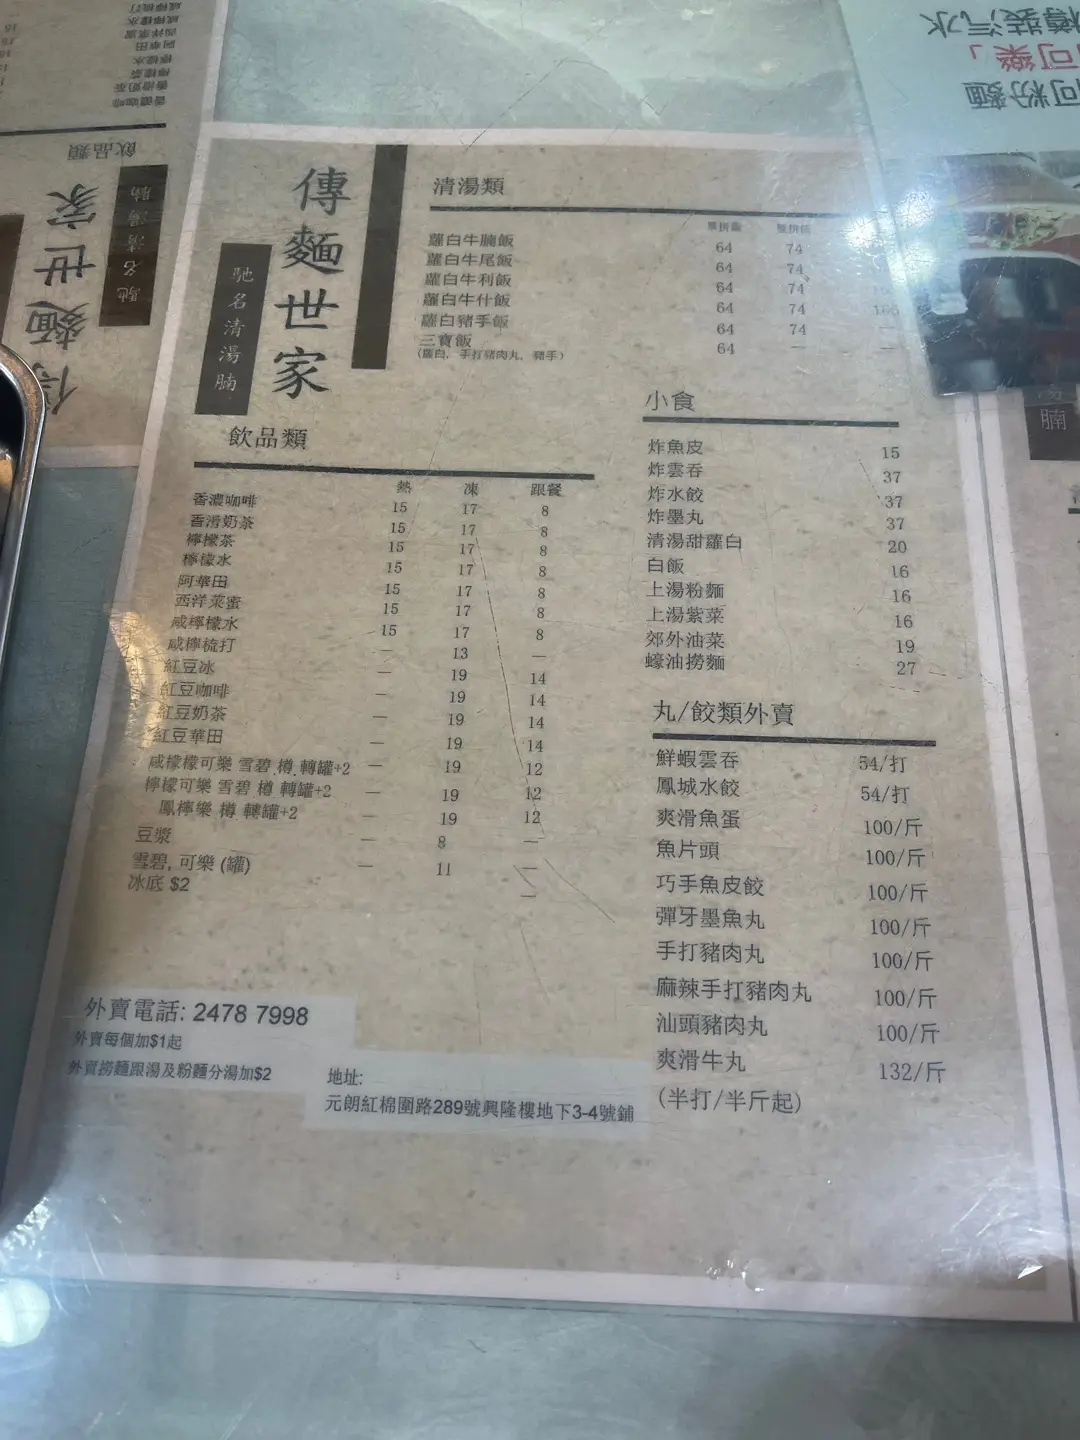 傳麵世家
馳名清湯腩
清湯類
單拼飯 雙拼飯
蘿白牛腩飯 64 74
蘿白牛尾飯 64 74
蘿白牛利飯 64 74
蘿白牛什飯 64 74
蘿白豬手飯 64 74 —
三寶飯 64 — —
(蘿白, 手打豬肉丸, 豬手)
飲品類
熱 凍 跟餐
香濃咖啡 15 17 8
香滑奶茶 15 17 8
檸檬茶 15 17 8
檸檬水 15 17 8
阿華田 15 17 8
西洋菜蜜 15 17 8
咸檸檬水 15 17 8
咸檸梳打 — 13 —
紅豆冰 — 19 14
紅豆咖啡 — 19 14
紅豆奶茶 — 19 14
紅豆華田 — 19 14
咸檬檬可樂 雪碧 樽 轉罐+2 — 19 12
檸檬可樂 雪碧 樽 轉罐+2 — 19 12
鳳檸樂 樽 轉罐+2 — 19 12
豆漿 — 8 —
雪碧, 可樂 (罐) — 11 —
冰底 $2 —
小食
炸魚皮 15
炸雲吞 37
炸水餃 37
炸墨丸 37
清湯甜蘿白 20
白飯 16
上湯粉麵 16
上湯紫菜 16
郊外油菜 19
蠔油撈麵 27
丸/餃類外賣
鮮蝦雲吞 54/打
鳳城水餃 54/打
爽滑魚蛋 100/斤
魚片頭 100/斤
巧手魚皮餃 100/斤
彈牙墨魚丸 100/斤
手打豬肉丸 100/斤
麻辣手打豬肉丸 100/斤
汕頭豬肉丸 100/斤
爽滑牛丸 132/斤
(半打/半斤起)
外賣電話: 2478 7998
外賣每個加$1起
外賣撈麵跟湯及粉麵分湯加$2
地址:
元朗紅棉圍路289號興隆樓地下3-4號鋪
飲品類
馳名清湯腩
麵世家
香濃咖啡
香滑奶茶
檸檬茶
檸檬水
阿華田
西洋菜蜜
咸檸檬水
咸檸梳打
樽裝汽水
可樂」
可粉麵
湯腩